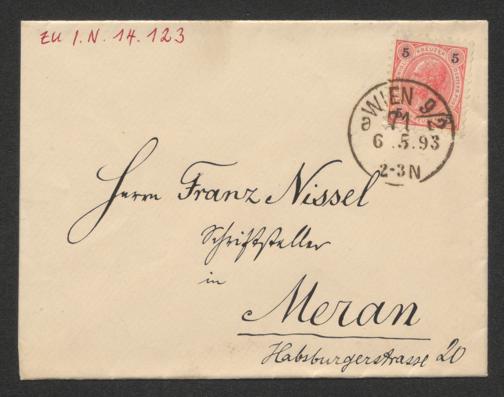 zu I.N. 14.123
5 KREUZER 5
WIEN 9/3
71
6.5.93
2-3N
Herrn Franz Nissel
Schriftsteller
in
Meran
Habsburgerstrasse 20